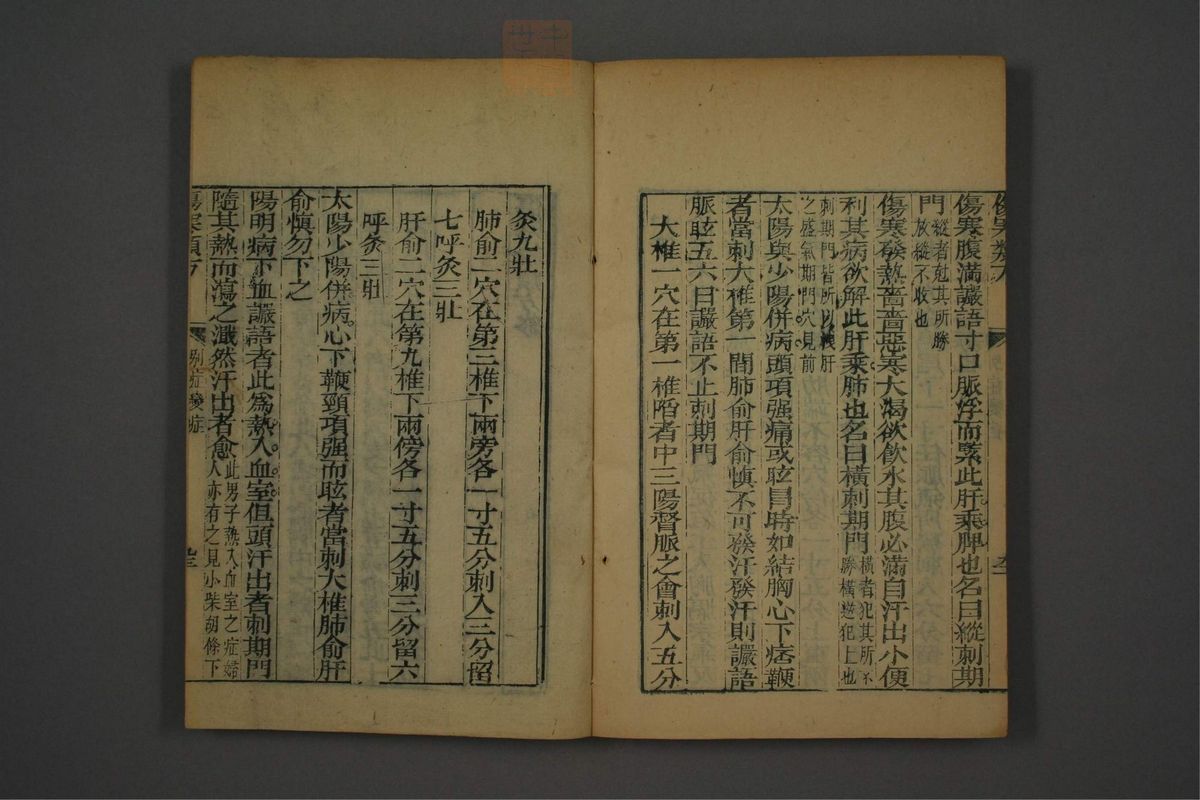 傷寒腹滿讝語寸口脈浮而緊此肝乘脾也名曰縱刺期
門 縱者尅其所勝放縱不收也
傷寒發熱嗇嗇惡寒大渴欲飲水其腹必滿自汗出小便
利其病欲解此肝乘肺也名曰橫刺期門 橫者犯其所不勝橫逆犯上也
刺期門皆所以瀉肝之盛氣期門穴見前
太陽與少陽併病頭項强痛或眩冒時如結胸心下痞鞕
者當刺大椎第一間肺俞肝俞慎不可發汗發汗則讝語
脈眩五六日讝語不止刺期門
大椎一穴在第一椎陷者中三陽督脈之會刺入五分
灸九壯
肺俞二穴在第三椎下兩旁各一寸五分刺入三分留
七呼灸三壯
肝俞二穴在第九椎下兩傍各一寸五分刺三分留六
呼灸三壯
太陽少陽併病心下鞕頸項强而眩者當刺大椎肺俞肝
俞慎勿下之
陽明病下血讝語者此為熱入血室但頭汗出者刺期門
隨其熱而瀉之濈然汗出者愈 此男子熱入血室之症婦人亦有之見小柴胡條下
傷寒類方
別症變症